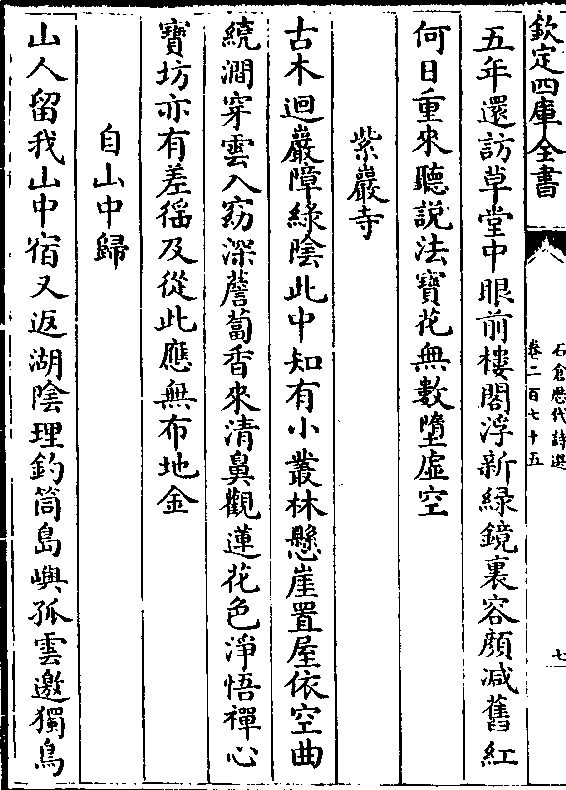 欽定四庫全書
石倉歷代詩選
卷二百七十五
七
五年還訪草堂中眼前樓閣浮新緑鏡裏容顔减舊紅
何日重來聽説法寶花無數墮虛空
紫巖寺
古木迴巖障緑陰此中知有小叢林懸崖置屋依空曲
繞澗穿雲入窈深薝蔔香來清鼻觀蓮花色淨悟禪心
寶坊亦有差徭及從此應無布地金
自山中歸
山人留我山中宿又返湖陰理釣筒島嶼孤雲邀獨鳥